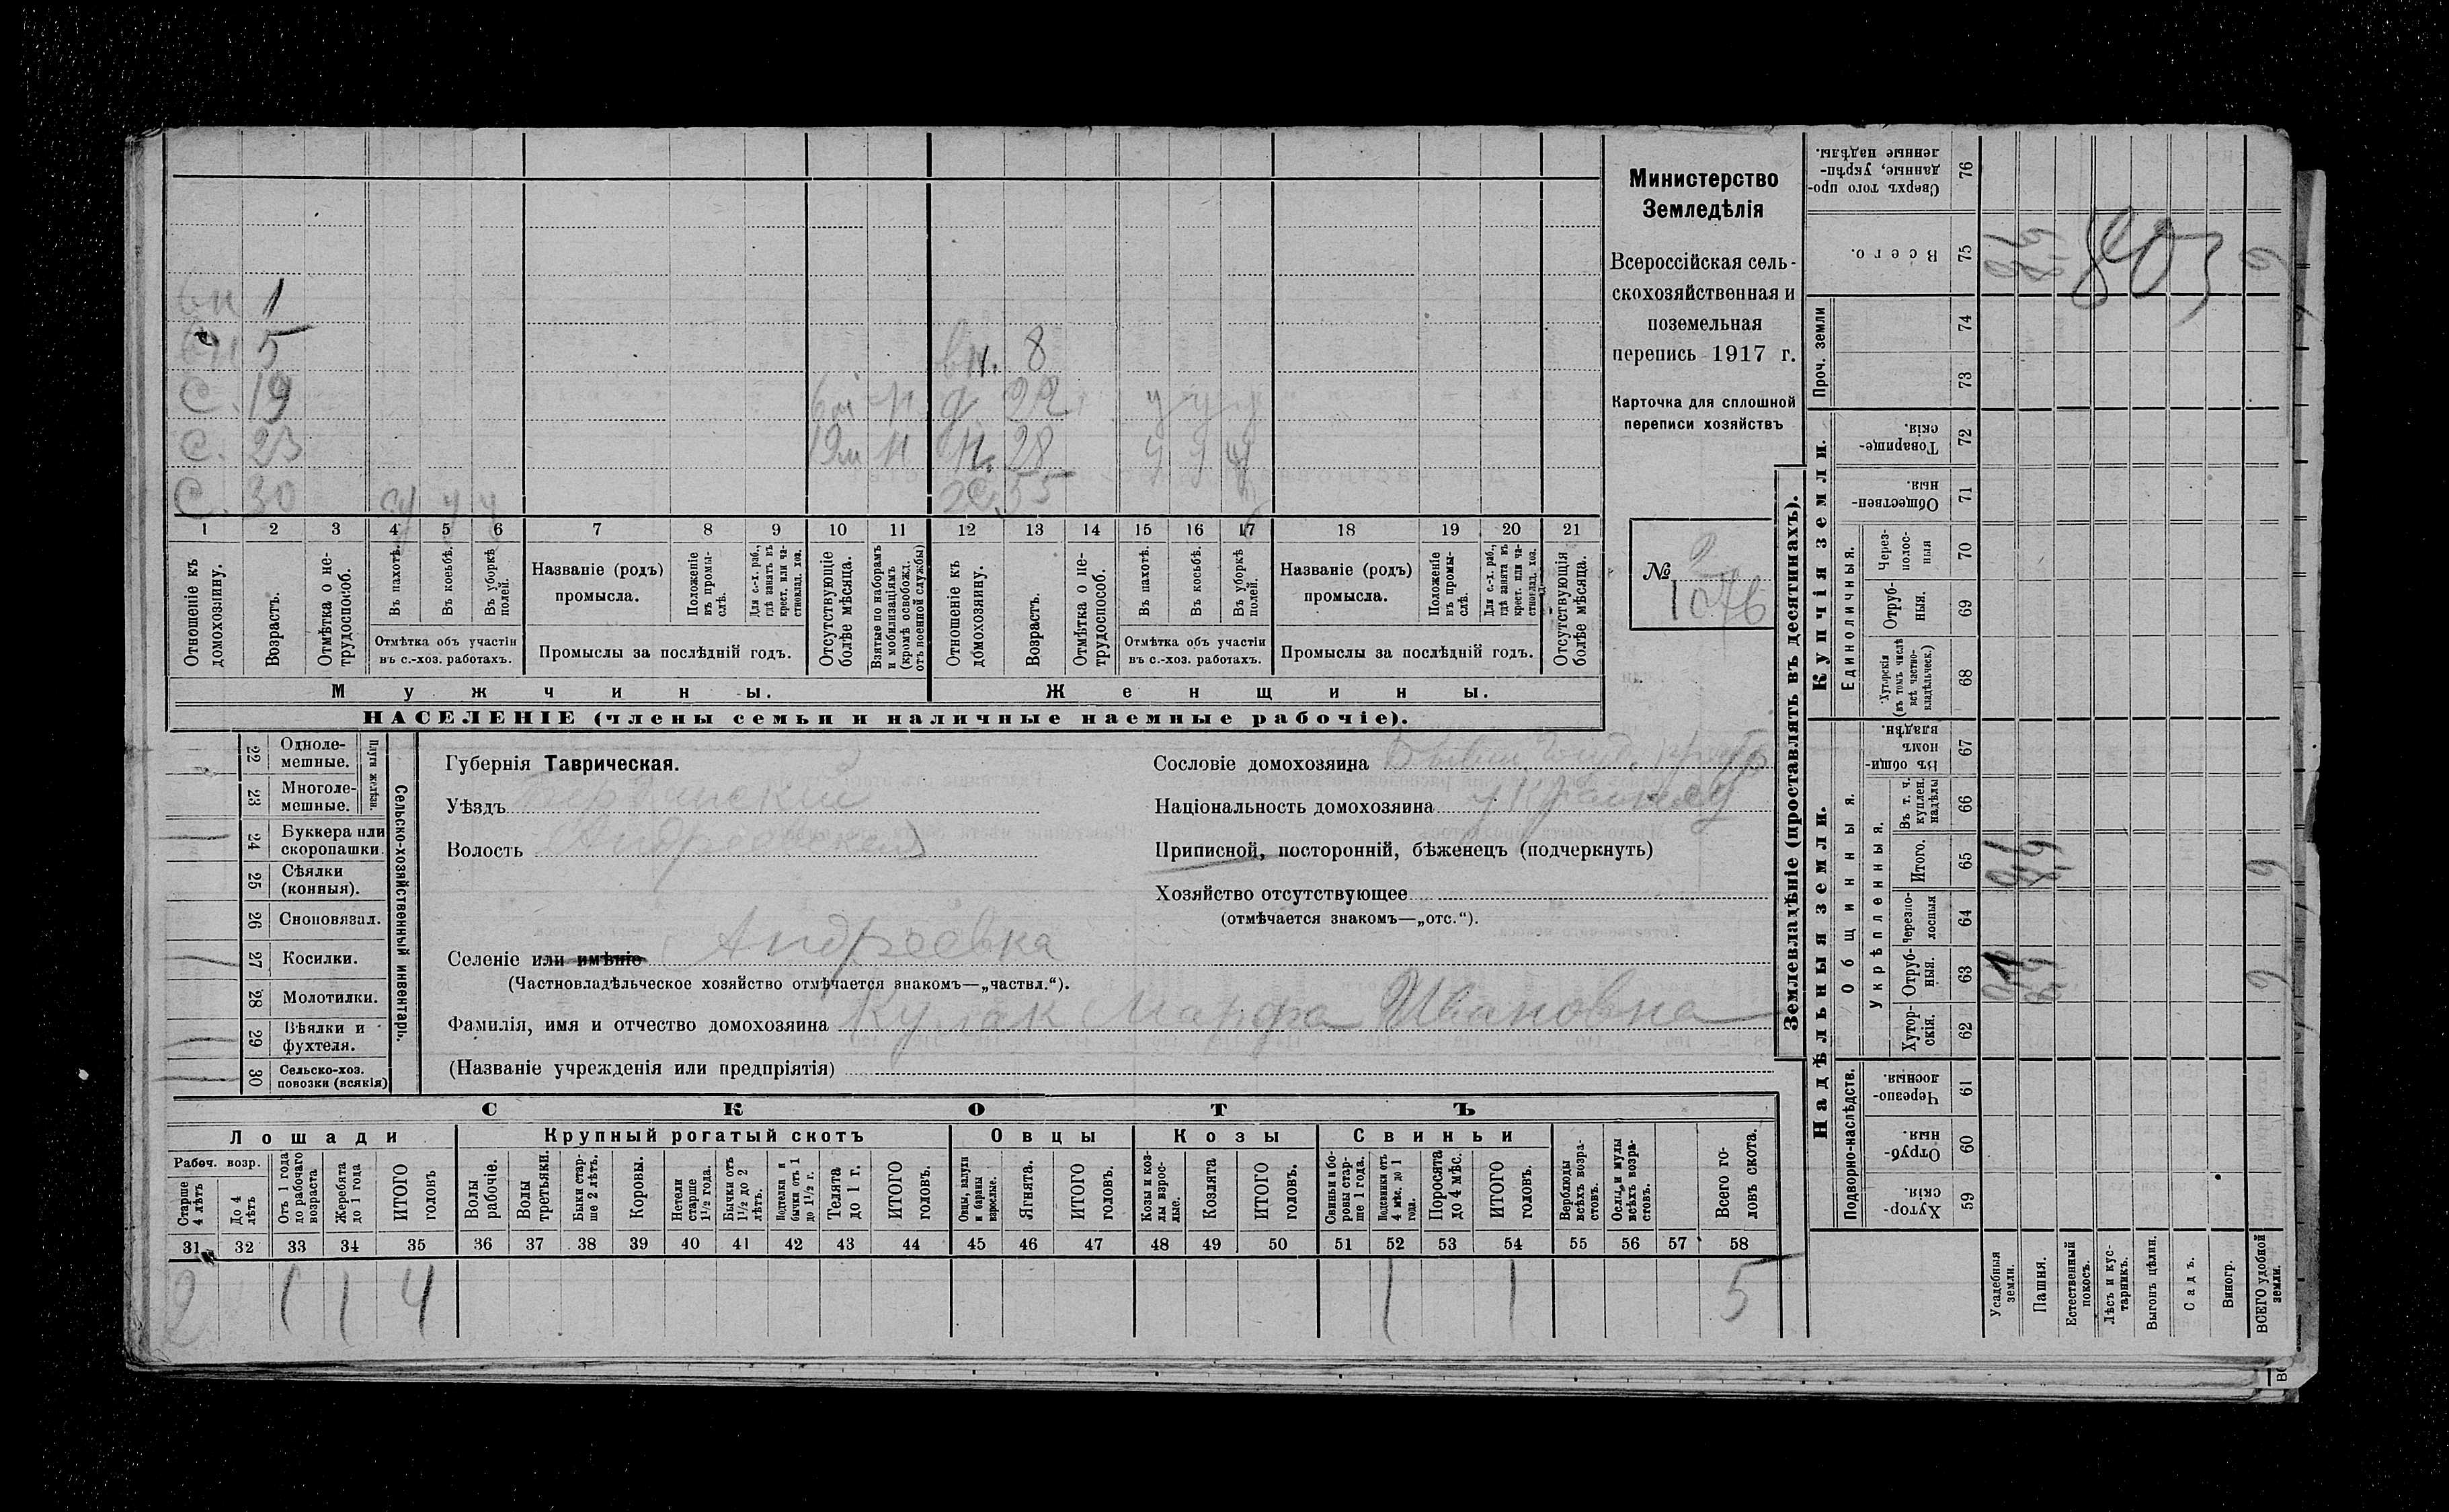 Министерство
Земледѣлія
Всероссійская сель-
скохозяйственная и
поземельная
перепись 1917 г.
Карточка для сплошной
переписи хозяйствъ
№ 2
107б
1
5
вн. 8
С. 19 д 22 у у у
С. 23 12м н н. 28 у у у
С. 30 у у у ж. 55
1 2 3 4 5 6 7 8 9 10 11 12 13 14 15 16 17 18 19 20 21
Отношеніе къ домохозяину.
Возрастъ.
Отмѣтка о не-трудоспособ.
Въ пахотѣ.
Въ косьбѣ.
Въ уборкѣ полей.
Отмѣтка объ участіи въ с.-хоз. работахъ.
Названіе (родъ) промысла.
Положеніе въ промы-слѣ.
Для с.-х. раб., гдѣ занятъ въ крест. или ча-стновлад. хоз.
Промыслы за послѣдній годъ.
Отсутствующіе болѣе мѣсяца.
Взятые по наборамъ и мобилизаціямъ (кромѣ освобожд. отъ военной службы)
Отношеніе къ домохозяину.
Возрастъ.
Отмѣтка о не-трудоспособ.
Въ пахотѣ.
Въ косьбѣ.
Въ уборкѣ полей.
Отмѣтка объ участіи въ с.-хоз. работахъ.
Названіе (родъ) промысла.
Положеніе въ промы-слѣ.
Для с.-х. раб., гдѣ занята въ крест. или ча-стновлад. хоз.
Промыслы за послѣдній годъ.
Отсутствующія болѣе мѣсяца.
Мужчины. Женщины.
НАСЕЛЕНІЕ (члены семьи и наличные наемные рабочіе).
22 Одноле-мешные.
23 Многоле-мешные.
Плуги желѣзн.
24 Буккера или скоропашки.
25 Сѣялки (конныя).
26 Сноповязал.
27 Косилки.
28 Молотилки.
29 Вѣялки и фухтеля.
30 Сельско-хоз. повозки (всякія)
Сельско-хозяйственный инвентарь.
Губернія Таврическая.
Уѣздъ Бердянский
Волость Андреевская
Селеніе или имѣніе Андреевка
(Частновладѣльческое хозяйство отмѣчается знакомъ—„частвл.“).
Фамилія, имя и отчество домохозяина Кулак Марфа Ивановна
(Названіе учрежденія или предпріятія)
Сословіе домохозяина
Національность домохозяина
Приписной, посторонній, бѣженецъ (подчеркнуть)
Хозяйство отсутствующее
(отмѣчается знакомъ—„отс.“).
СКОТЪ
Лошади Крупный рогатый скотъ Овцы Козы Свиньи
Рабоч. возр.
Старше 4 лѣтъ
До 4 лѣтъ
Отъ 1 года до рабочаго возраста
Жеребята до 1 года
ИТОГО головъ
Волы рабочіе.
Волы третьяки.
Быки стар-ше 2 лѣтъ.
Коровы.
Нетели старше 1½ года.
Бычки отъ 1½ до 2 лѣтъ.
Подтелки и бычки отъ 1 до 1½ г.
Телята до 1 г.
ИТОГО головъ.
Овцы, валухи и бараны взрослые.
Ягнята.
ИТОГО головъ.
Козы и коз-лы взрос-лые.
Козлята
ИТОГО головъ.
Свиньи и бо-ровы стар-ше 1 года.
Подсвинки отъ 4 мѣс. до 1 года.
Поросята до 4 мѣс.
ИТОГО головъ.
Верблюды всѣхъ возра-стовъ.
Ослы и мулы всѣхъ возра-стовъ.
Всего го-ловъ скота.
31 32 33 34 35 36 37 38 39 40 41 42 43 44 45 46 47 48 49 50 51 52 53 54 55 56 57 58
2 1 1 4 1 1 5
Землевладѣніе (проставлять въ десятинахъ).
Надѣльныя земли. Купчія земли. Проч. земли
Подворно-наслѣдств.
Общинныя.
Укрѣпленныя.
Единоличныя.
Хутор-скія. 59
Отруб-ныя. 60
Черезпо-лосныя. 61
Хутор-скія. 62
Отруб-ныя. 63
Черезпо-лосныя 64
Итого. 65
Въ т. ч. куплен. надѣлы 66
Въ общин-номъ владѣн. 67
Хуторскія (въ томъ числѣ всѣ частно-владѣльческ.) 68
Отруб-ныя. 69
Через-полос-ныя 70
Обществен-ныя. 71
Товарище-скія. 72
73
74
Всего. 75
Сверхъ того про-данные, укрѣп-ленные надѣлы. 76
Усадебныя земли.
Пашня.
Естественный покосъ.
Лѣсъ и кус-тарникъ.
Выгонъ цѣлин.
Садъ.
Виногр.
ВСЕГО удобной земли.
803